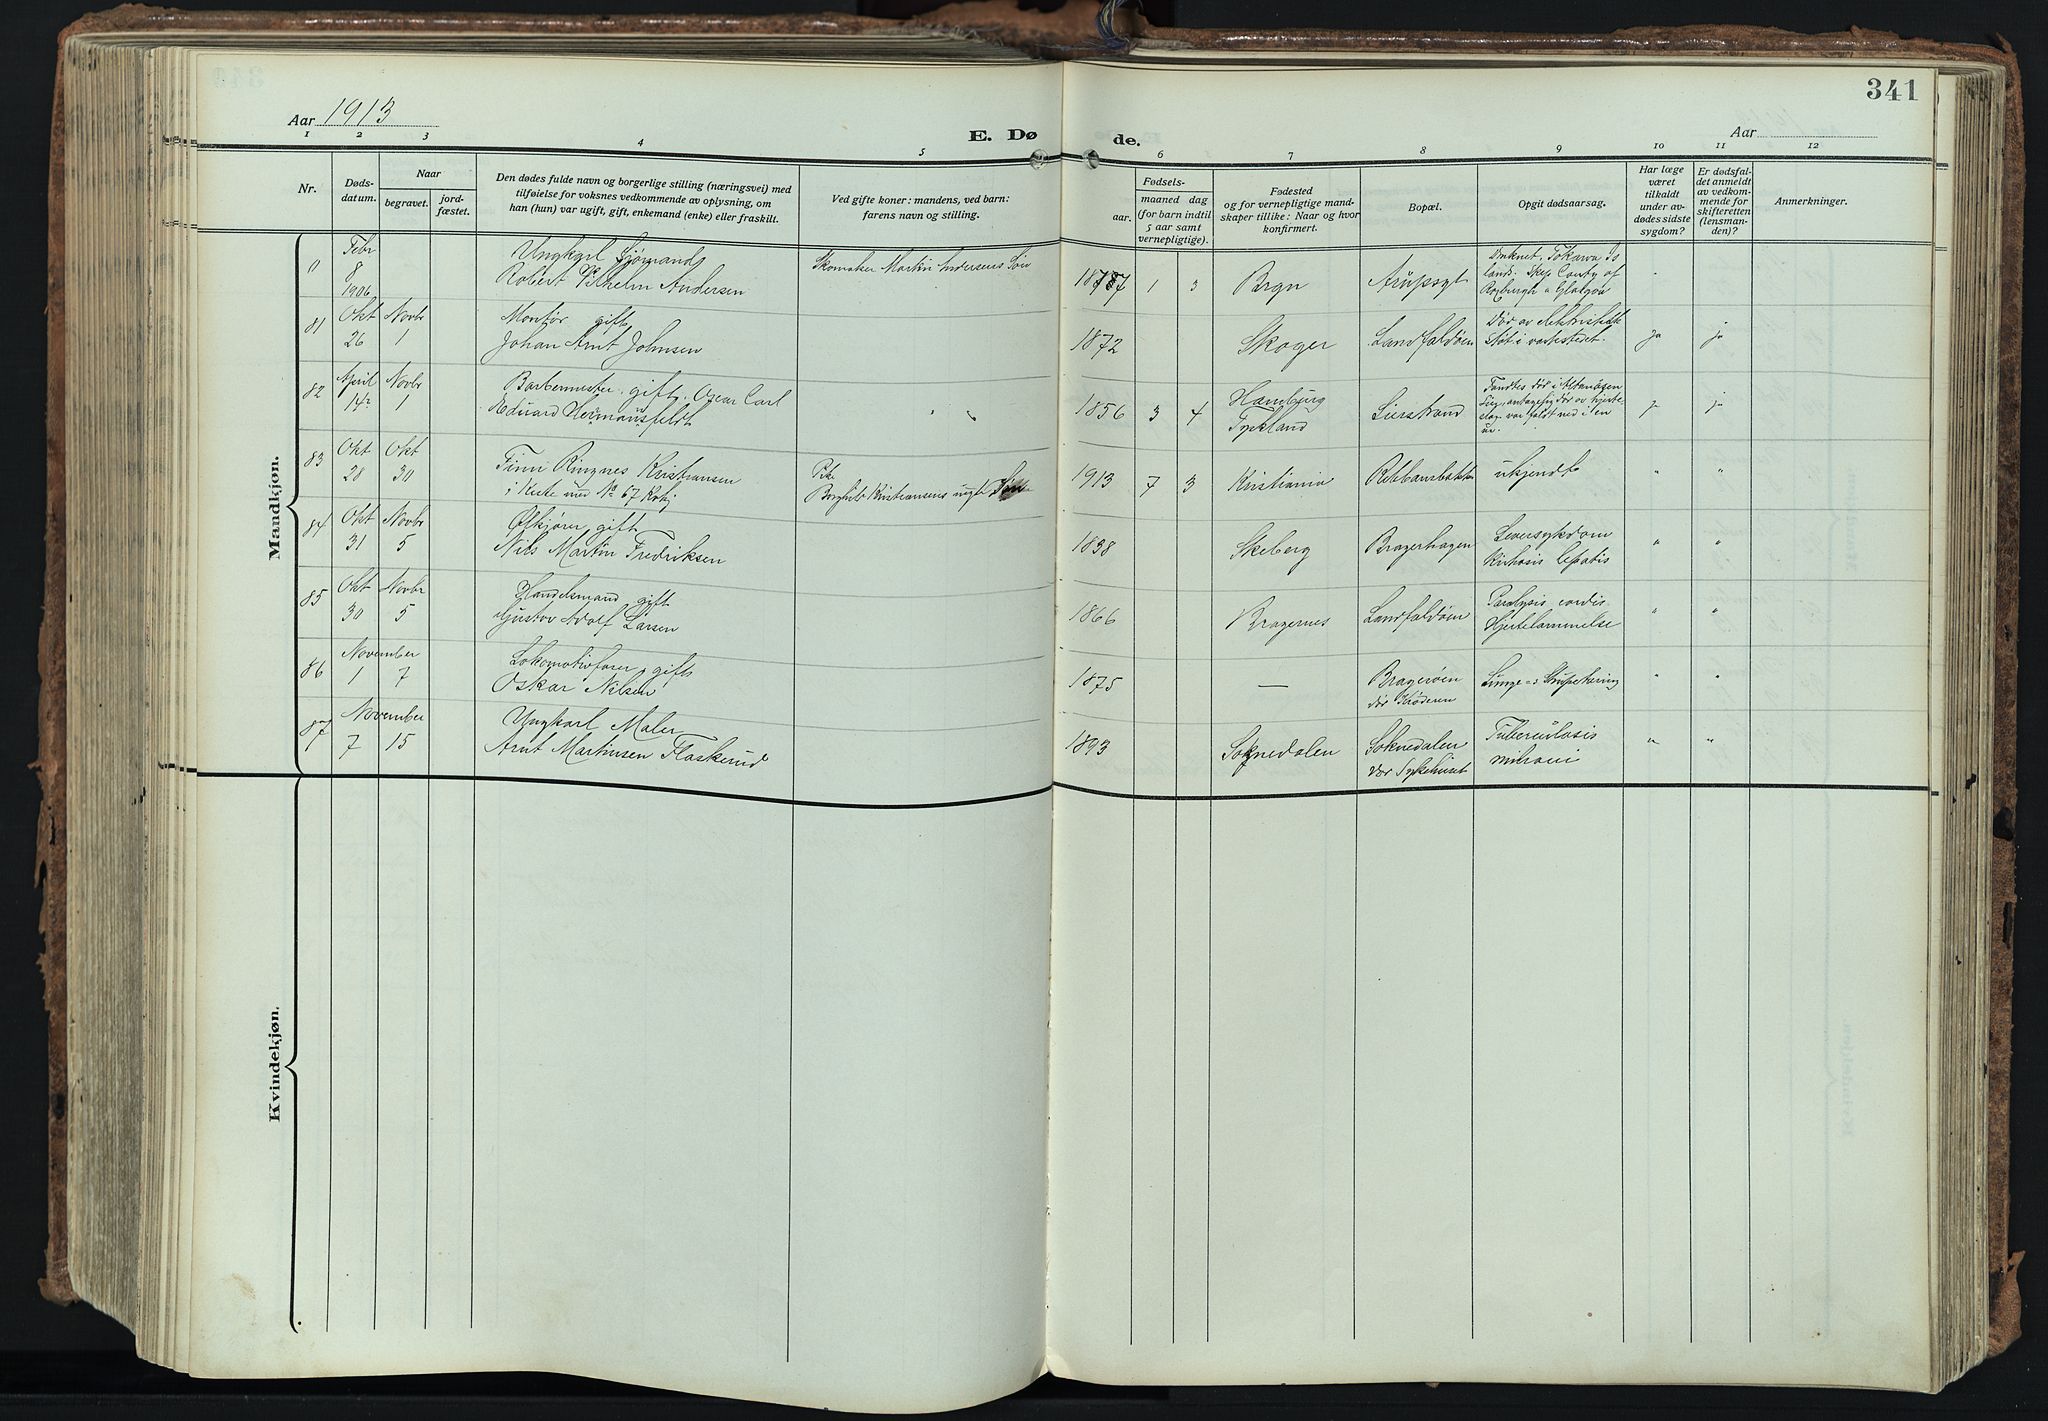 341
Aar 1913
E. Dø de.
Aar
1 2 3 4 5 6 7 8 9 10 11 12
Nr.
Døds-
datum.
Naar
begravet.
jord-
fæstet.
Den dødes fulde navn og borgerlige stilling (næringsvei) med
tilføielse for voksnes vedkommende av oplysning, om
han (hun) var ugift, gift, enkemand (enke) eller fraskilt.
Ved gifte koner: mandens, ved barn:
farens navn og stilling.
Fødsels-
aar.
maaned dag
(for barn indtil
5 aar samt
vernepligtige).
Fødested
og for vernepligtige mand-
skaper tillike: Naar og hvor
konfirmert.
Bopæl.
Opgit dødsaarsag.
Har læge
været
tilkaldt
under av-
dødes sidste
sygdom?
Er dødsfal-
det anmeldt
av vedkom-
mende for
skifteretten
(lensman-
den)?
Anmerkninger.
Mandkjøn.
Febr
8
1906
Ungkarl Sjømand
Robert Vilhelm Andersen
Skomaker Martin Andersens Søn
1 3
Bragn
Druknet. Tokawa Is
land. Skip County of
Roxburgh a Glasgow
81
Okt Novbr
26 1
Montør gift
Johan Arnt Johnsen
1872
Skoger
Landfaldøen
Død av elektrisk
Støt i verkstedet.
ja ja
82
April Novbr
14 1
Barbermester gift. Oscar Carl
Eduard Hermansfeldt
1856 3 4
Hamburg
Tyskland
Lierstrand
Fandtes død i
antagelig død av hjerte-
slag var faldt ned i en
ur.
ja ja
83
Okt Okt
28 30
Finn Ringnes Kristiansen
i Kiste med No 67 Kvkj
Pike
Borghild Kristiansens uegte Søn
1913 7 3
Kristiania
ukjendt
" "
84
Okt Novbr
31 5
Ølkjører gift
Nils Martin Fredriksen
1838
Skeberg
Bragerhagen
Leversykdom
" "
85
Okt Novbr
30 5
Handelsmand gift
Gustav Adolf Larsen
1866
Bragernes
Landfaldøen
Paralysis cordis
Hjertelammelse
" "
86
November
1 7
Lokomotivfører gift
Oskar Nilsen
1875
—
Bragerøen
død Krøderen
Lunge- og Strupetæring
" "
87
November
7 15
Ungkarl Maler
Arnt Martinsen Flaskerud
1893
Soknedalen
Soknedalen
død Sykehuset
Tuberculosis
miliaris
" "
Kvindekjøn.